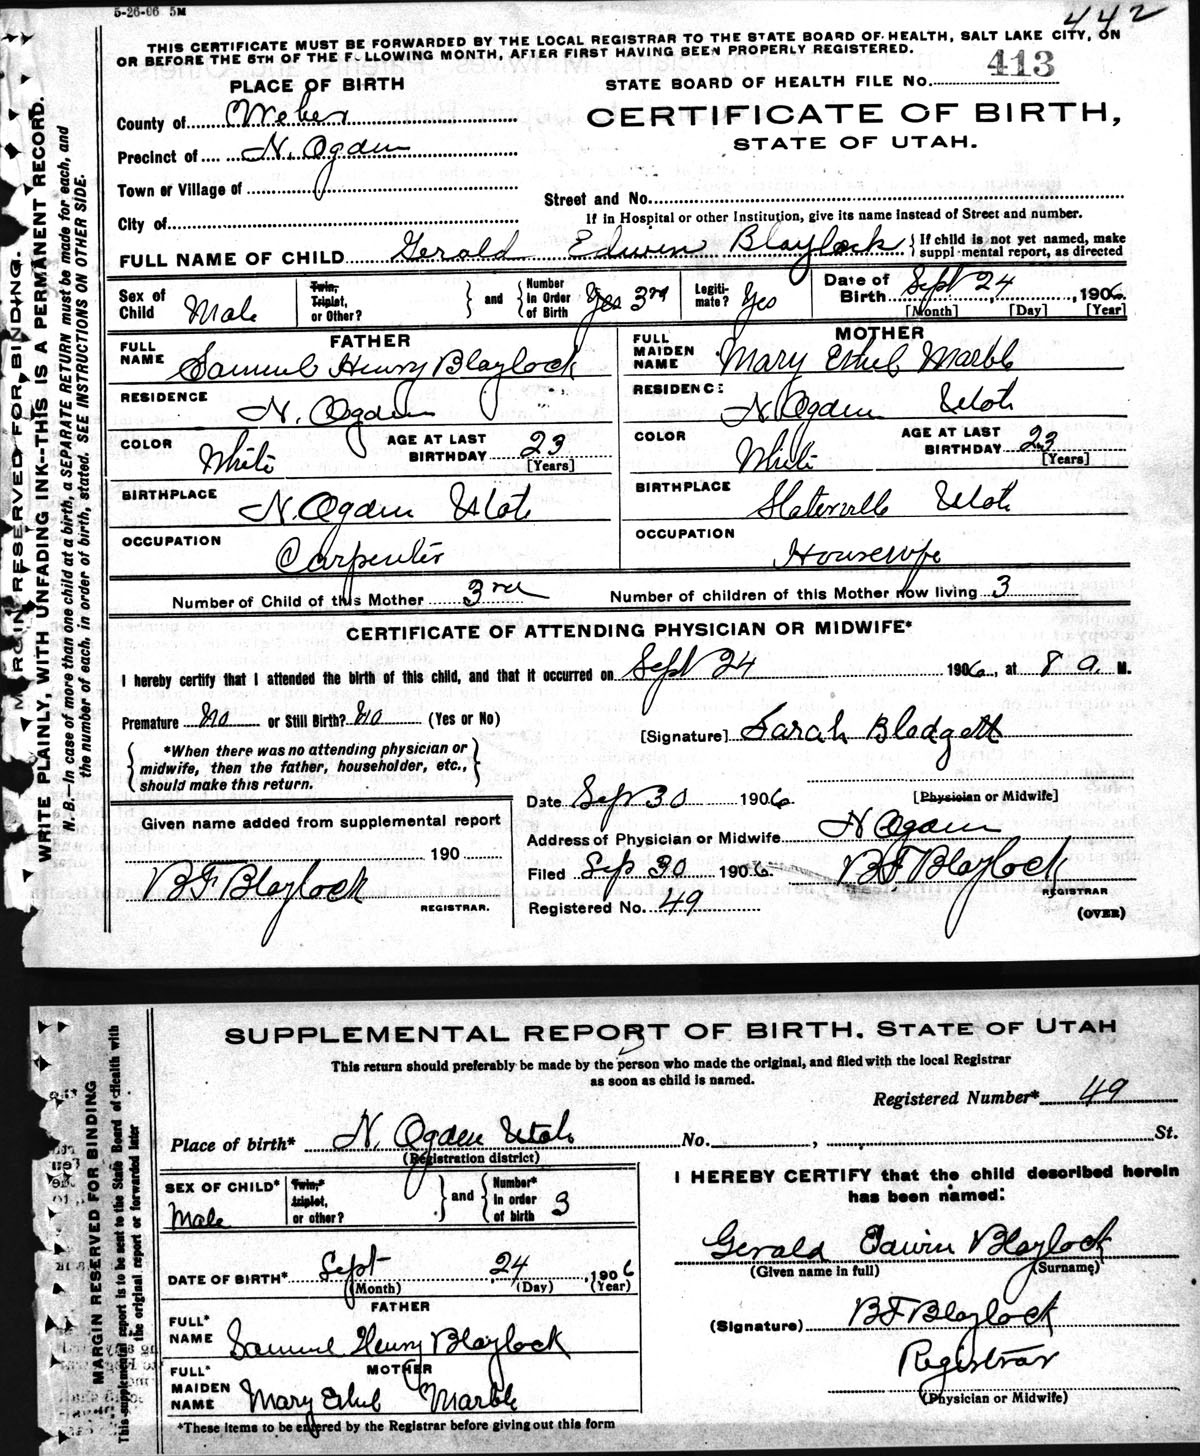 5-26-06 5M
442
THIS CERTIFICATE MUST BE FORWARDED BY THE LOCAL REGISTRAR TO THE STATE BOARD OF HEALTH, SALT LAKE CITY, ON
OR BEFORE THE 5TH OF THE FOLLOWING MONTH, AFTER FIRST HAVING BEEN PROPERLY REGISTERED.
PLACE OF BIRTH
STATE BOARD OF HEALTH FILE NO. 413
County of Weber
CERTIFICATE OF BIRTH,
STATE OF UTAH.
Precinct of N. Ogden
Town or Village of
Street and No.
City of
If in Hospital or other Institution, give its name instead of Street and number.
FULL NAME OF CHILD Gerald Edwin Blaylock { If child is not yet named, make
suppl mental report, as directed
Sex of Child Male
Twin, Triplet, or Other? } and { Number In Order of Birth Yes 3rd
Legiti-mate? Yes
Date of Birth Sept 24, 1906
[Month] [Day] [Year]
FATHER
MOTHER
FULL NAME Samuel Henry Blaylock
FULL MAIDEN NAME Mary Ethel Marble
RESIDENCE N. Ogden
RESIDENCE N. Ogden Utah
COLOR White AGE AT LAST BIRTHDAY 23 [Years]
COLOR White AGE AT LAST BIRTHDAY 23 [Years]
BIRTHPLACE N. Ogden Utah
BIRTHPLACE Slaterville Utah
OCCUPATION Carpenter
OCCUPATION Housewife
Number of Child of this Mother 3rd Number of children of this Mother now living 3
CERTIFICATE OF ATTENDING PHYSICIAN OR MIDWIFE*
I hereby certify that I attended the birth of this child, and that it occurred on Sept 24 1906, at 8 a. M.
Premature No or Still Birth? No (Yes or No)
[Signature] Sarah Blodgett
{ *When there was no attending physician or
midwife, then the father, householder, etc.,
should make this return. }
[Physician or Midwife]
Date Sep 30 1906.
Given name added from supplemental report
Address of Physician or Midwife N Ogden
190
Filed Sep 30 1906. BF Blaylock
REGISTRAR
BF Blaylock
REGISTRAR.
Registered No. 49
(OVER)
MARGIN RESERVED FOR BINDING.
WRITE PLAINLY, WITH UNFADING INK--THIS IS A PERMANENT RECORD.
N. B.—In case of more than one child at a birth, a SEPARATE RETURN must be made for each, and
the number of each, in order of birth, stated. SEE INSTRUCTIONS ON OTHER SIDE.
SUPPLEMENTAL REPORT OF BIRTH. STATE OF UTAH
This return should preferably be made by the person who made the original, and filed with the local Registrar
as soon as child is named.
Registered Number* 49
Place of birth* N. Ogden Utah No. , St.
(Registration district)
SEX OF CHILD* Male
Twin,* triplet, or other? } and { Number* In order of birth 3
I HEREBY CERTIFY that the child described herein
has been named:
Gerald Edwin Blaylock
(Given name in full) (Surname)
DATE OF BIRTH* Sept 24, 1906
(Month) (Day) (Year)
FATHER
FULL* NAME Samuel Henry Blaylock
(Signature) BF Blaylock
Registrar
(Physician or Midwife)
MOTHER
FULL* MAIDEN NAME Mary Ethel Marble
*These items to be entered by the Registrar before giving out this form
MARGIN RESERVED FOR BINDING
This supplemental report is to be sent to the State Board of Health with
the original report or forwarded later